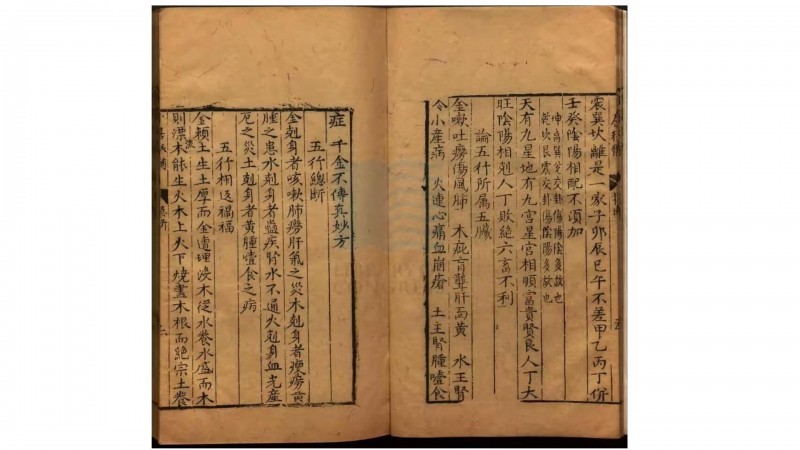 震巽坎離是一家子卯辰巳午不差甲乙丙丁併
壬癸陰陽相配不須加
天有九星地有九宮星宮相順富貴賢良人丁大
旺陰陽相剋人丁敗絕六畜不利
論五行所属五臟
金嗽吐癆傷風肺 木疵盲聾肝面黄 水王腎
令小產病 火連心痛血崩瘡 土主腎腫噎食
症 千金不傳真妙方
五行總断
金剋身者咳嗽肺癆肝氣之災木剋身者瘦癆黄
腫之患水剋身者蠱疾腎水不通火剋身血光產
厄之災土剋身者黄腫噎食之病
五行相返福福
金頼土生土厚而金遭埋沒木從水養水盛而木
則漂木能生火木上火下燒盡木根而絕宗土養